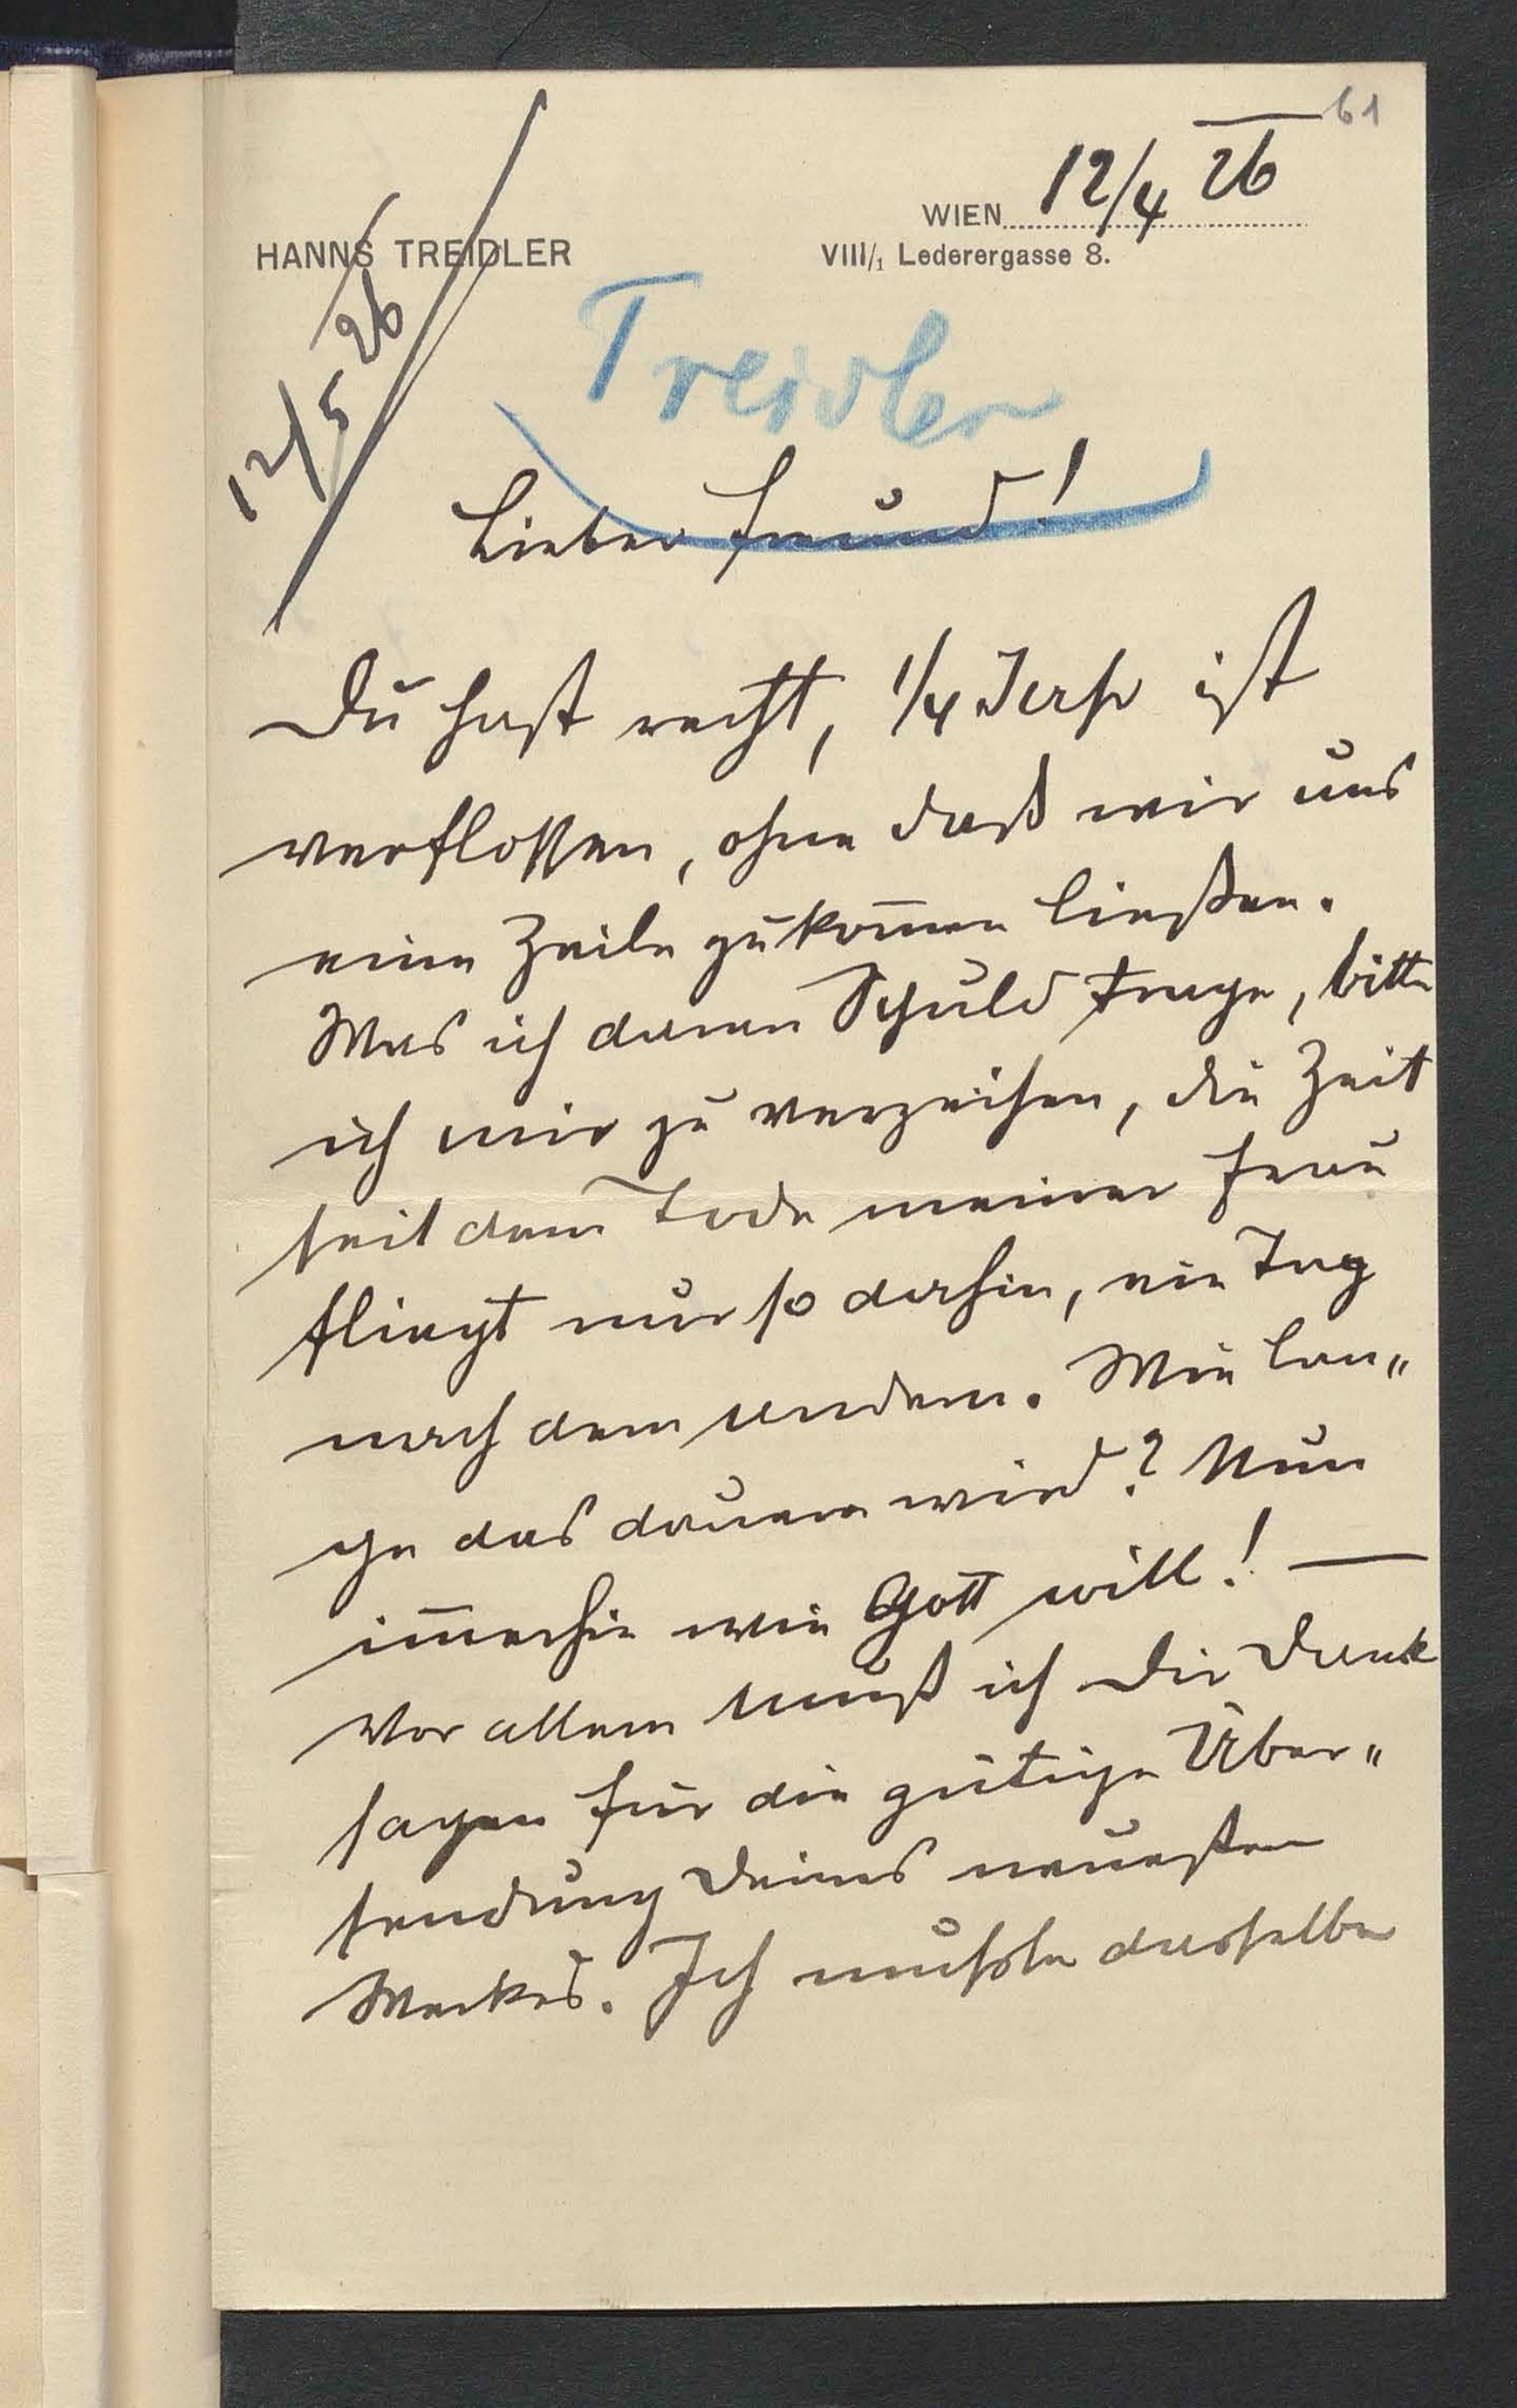 61
WIEN 12/4 26
HANNS TREIDLER
VIII/1 Lederergasse 8.
12/5 26
Treidler
Lieber Freund!
Du hast recht, 1/4 Jahr ist
verflossen, ohne daß wir uns
eine Zeile zukom̄en ließen.
Was ich daran Schuld trage, bitte
ich mir zu verzeihen, die Zeit
seit dem Tode meiner Frau
fliegt nur so dahin, ein Tag
nach dem andern. Wie lan„
ge das dauern wird? Nun
im̄erhin wie Gott will! —
Vor allem muß ich Dir Dank
sagen für die gütige Über„
sendung Deines neuesten
Werkes. Ich mußte dasselbe